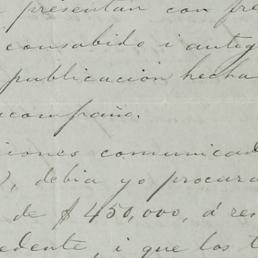 presentan con fre
consabido i antig
publicación hecha
acompaño.
iones comunicad
, debia yo procura
de $450,000, á res
edente, i que los t